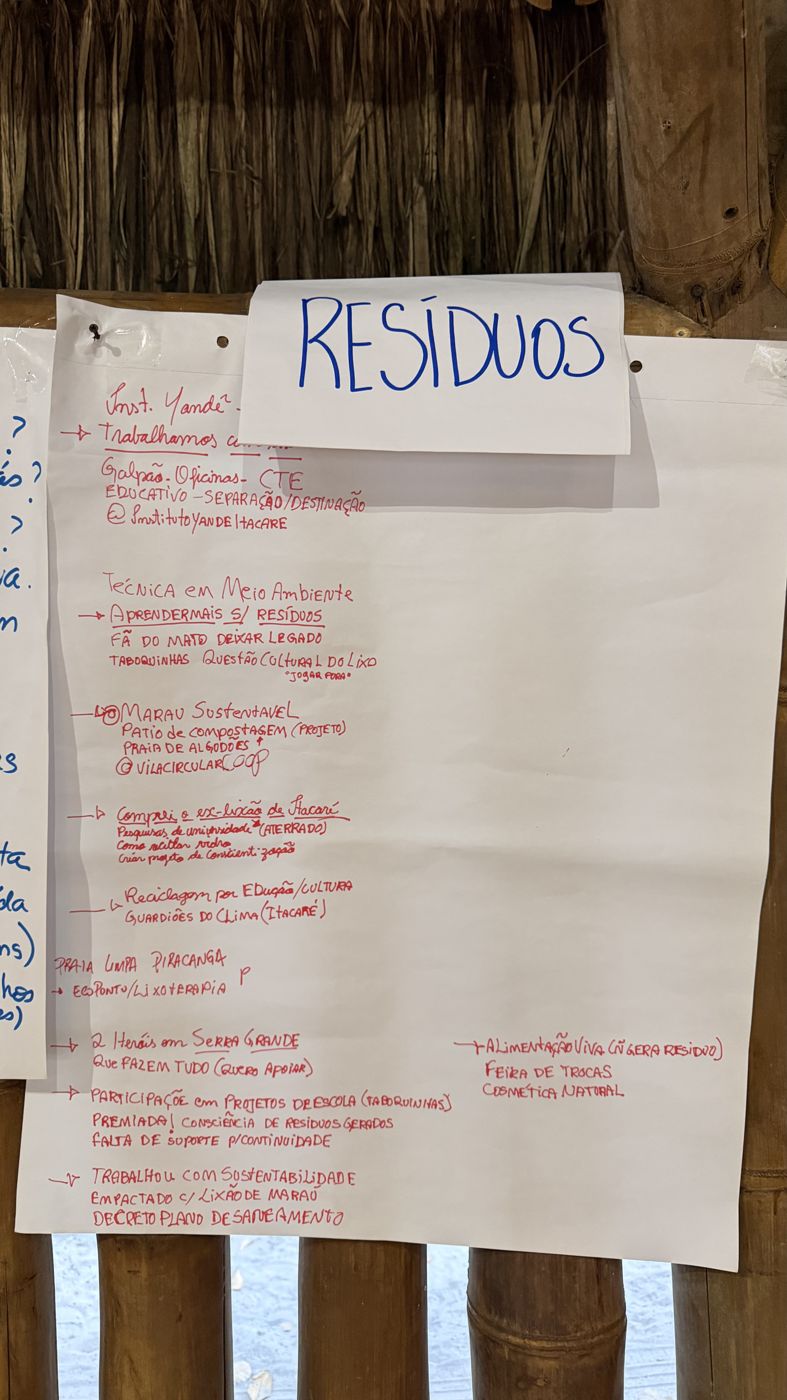 RESÍDUOS
Inst. Yandê -
Trabalhamos
Galpão - Oficinas - CTE
EDUCATIVO - SEPARAÇÃO/DESTINAÇÃO
@InstitutoYANDEITACARE
TÉCNICA EM MEIO AMBIENTE
APRENDER MAIS S/ RESÍDUOS
FÃ DO MATO DEIXAR LEGADO
TABOQUINHAS QUESTÃO CULTURAL DO LIXO
"JOGAR FORA"
MARAU SUSTENTAVEL
PATIO DE COMPOSTAGEM (PROJETO)
PRAIA DE ALGODÕES
@VILACIRCULARCOOP
Comprei o ex-lixão de Itacaré
Pesquisas de universidade (ATERRADO)
Como reutilizar vidro
Criar projeto de conscientização
Reciclagem por EDUÇÃO/CULTURA
GUARDIÕES DO CLIMA (ITACARÉ)
PRAIA LIMPA PIRACANGA
P
ECOPONTO/LIXOTERAPIA
2 Heróis em SERRA GRANDE
QUE FAZEM TUDO (QUERO APOIAR)
PARTICIPAÇÕE em PROJETOS DE ESCOLA (TABOQUINHAS)
PREMIADA! CONSCIÊNCIA DE RESÍDUOS GERADOS
FALTA DE SUPORTE P/CONTINUIDADE
TRABALHOU COM SUSTENTABILIDADE
EMPACTADO C/ LIXÃO DE MARAÚ
DECRETO PLANO DE SANEAMENTO
ALIMENTAÇÃO VIVA (Ñ GERA RESIDUO)
FEIRA DE TROCAS
COSMETICA NATURAL